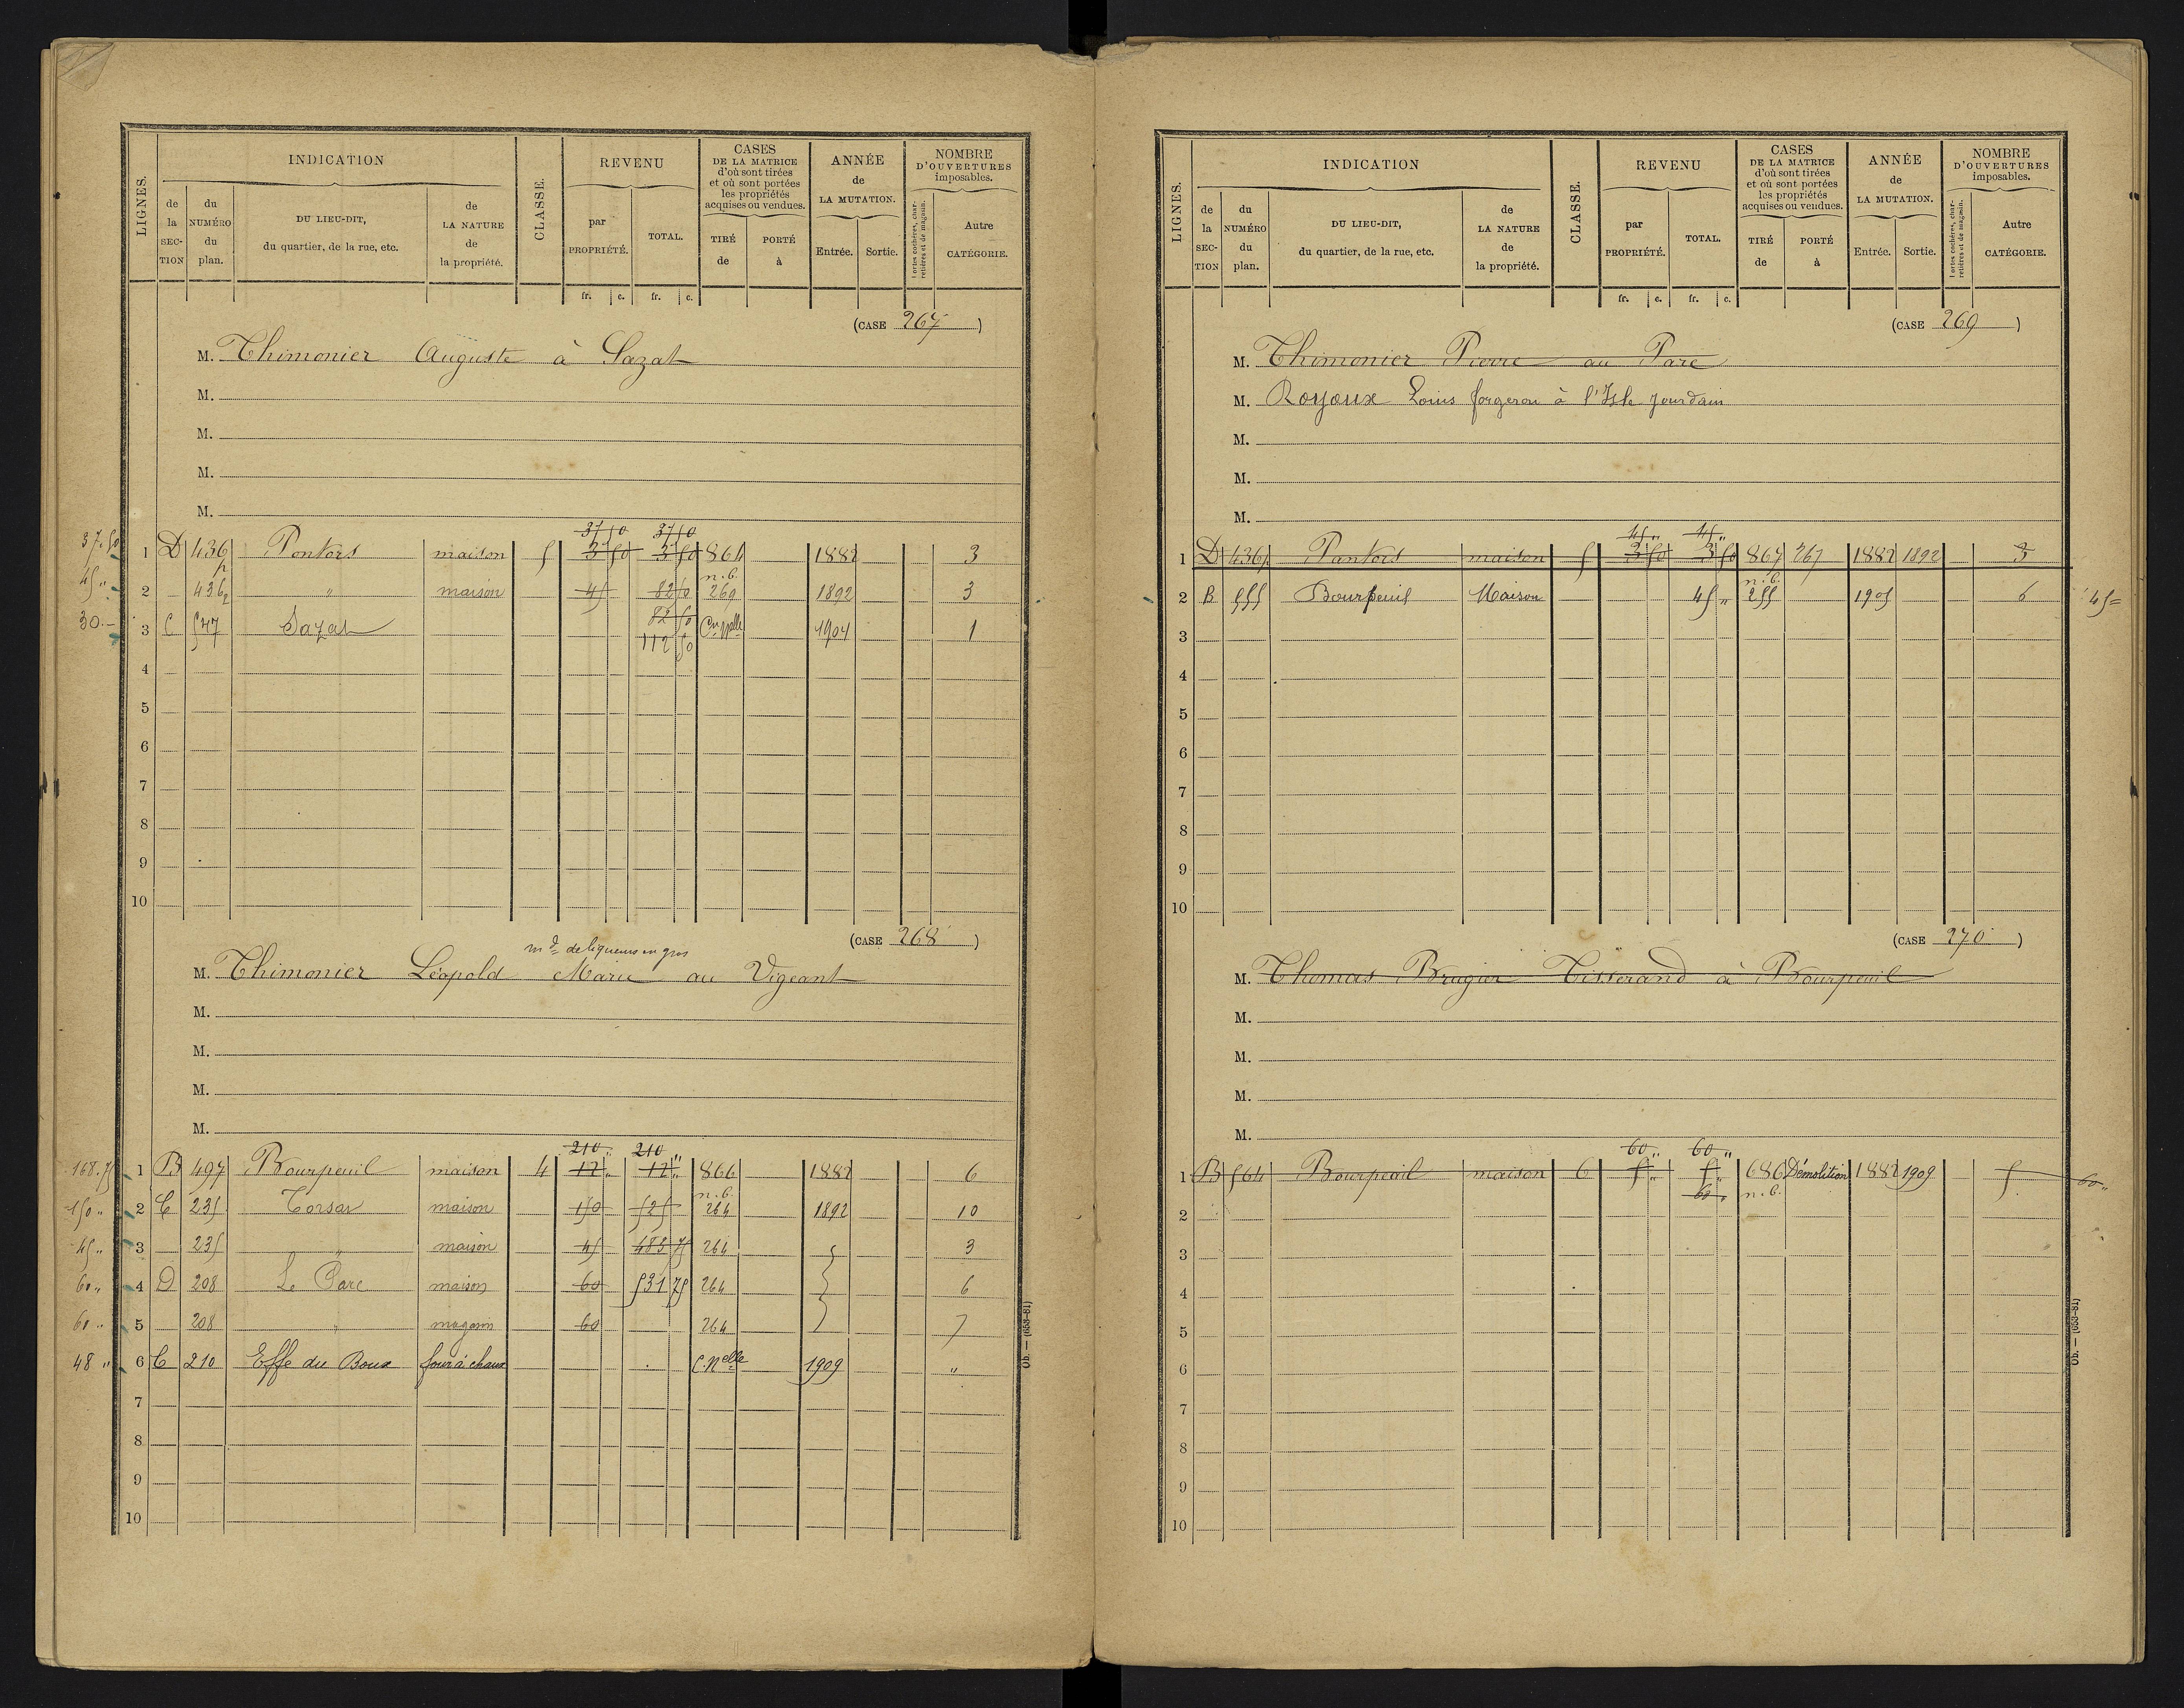 LIGNES.
INDICATION
de la SECTION
du NUMÉRO du plan.
DU LIEU-DIT, du quartier, de la rue, etc.
de LA NATURE de la propriété.
CLASSE.
REVENU
par PROPRIÉTÉ.
TOTAL.
fr. c. fr. c.
CASES
DE LA MATRICE
d'où sont tirées
et où sont portées
les propriétés
acquises ou vendues.
TIRÉ de
PORTÉ à
ANNÉE
de
LA MUTATION.
Entrée. Sortie.
NOMBRE
D'OUVERTURES
imposables.
Portes cochères, charretières et de magasin.
Autre CATÉGORIE.
(CASE 267)
M. Thimonier Auguste à Sazat
M.
M.
M.
M.
37 50 37 50
37.50 1 D 436p maison 5 3 50 3 50 864 1882 3
n.b.
45 " 2 436p " maison 45 82 50 269 1892 3
82 50
30.- 3 C 547 Sazat 1904 1
112 50
4
5
6
7
8
9
10
(CASE 268)
md de liqueurs en gros
M. Thimonier Léopold Marie au Vigeant
M.
M.
M.
M.
210 " 210 "
168.75 1 B 497 Bourpeuil maison 4 12 " 12 " 866 1882 6
n.b.
150 " 2 C 235 Torsac maison 150 525 264 1892 10
45 " 3 235 " maison 45 483 75 264 3
60 " 4 D 208 Le Parc maison 60 531 75 264 6
60 " 5 208 " magasin 60 264 7
48 " 6 C 210 Effe du Boux four à chaux C. Nelle 1909 "
7
8
9
10
Ob. — (653-81)
LIGNES.
INDICATION
de la SECTION
du NUMÉRO du plan.
DU LIEU-DIT, du quartier, de la rue, etc.
de LA NATURE de la propriété.
CLASSE.
REVENU
par PROPRIÉTÉ.
TOTAL.
fr. c. fr. c.
CASES
DE LA MATRICE
d'où sont tirées
et où sont portées
les propriétés
acquises ou vendues.
TIRÉ de
PORTÉ à
ANNÉE
de
LA MUTATION.
Entrée. Sortie.
NOMBRE
D'OUVERTURES
imposables.
Portes cochères, charretières et de magasin.
Autre CATÉGORIE.
(CASE 269)
M. Thimonier Pierre au Parc
M. Royoux Louis forgeron à l'Isle Jourdain
M.
M.
M.
45 " 45 "
1 D 436p maison 5 3 50 3 50 867 267 1882 1892 3
n.b.
2 B 555 Bourpeuil Maison 45 " 255 1905 6 45=
3
4
5
6
7
8
9
10
(CASE 270)
M. Thomas Brugier Tisserand à Bourpeuil
M.
M.
M.
M.
60 " 60 "
1 B 564 Bourpeuil maison 6 5 " 5 " 686 Démolition 1882 1909 5 60 "
60 " n.b.
2
3
4
5
6
7
8
9
10
Ob. — (653-81)